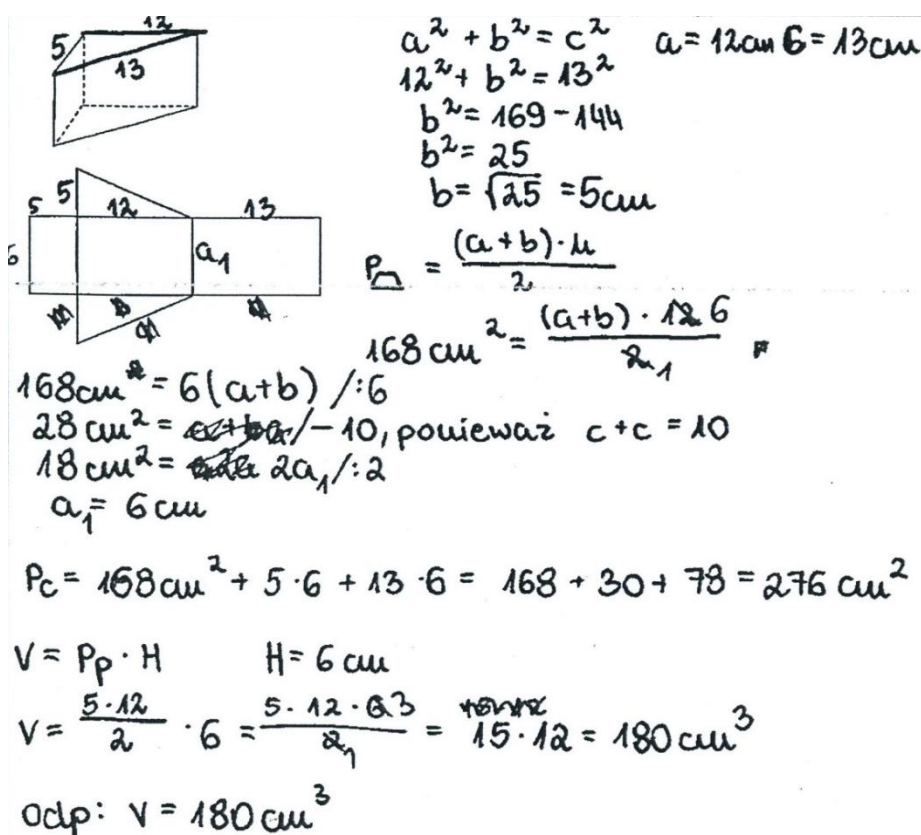 12
5
13
a² + b² = c² a = 12cm 6 = 13cm
12² + b² = 13²
b² = 169 - 144
b² = 25
b = √25 = 5cm
5
5 12 13
a₁
P⏢ = (a+b)·h / 2
168 cm² = (a+b) · 12 6 / 2 1
168cm² = 6(a+b) /:6
28 cm² = /-10, ponieważ c+c = 10
18 cm² = 2a₁/:2
a₁ = 6 cm
Pc = 168cm² + 5·6 + 13·6 = 168 + 30 + 78 = 276 cm²
V = Pp · H H = 6 cm
V = 5·12 / 2 · 6 = 5·12·6 3 / 2 1 = 15·12 = 180 cm³
odp: V = 180 cm³